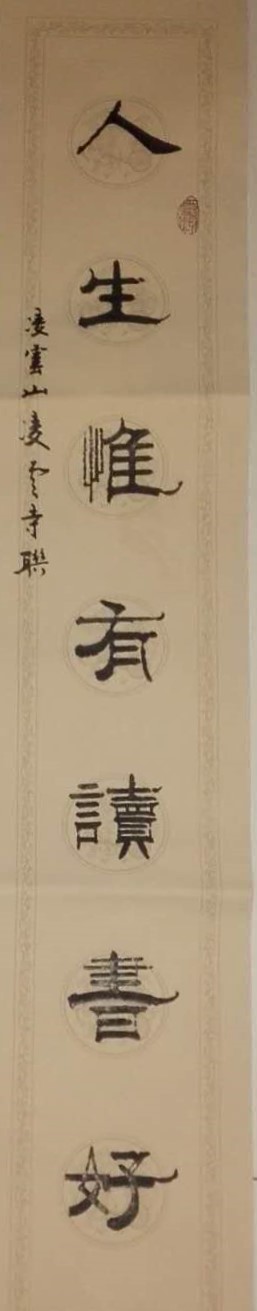 人生惟有讀書好
凌雲山凌雲寺聯